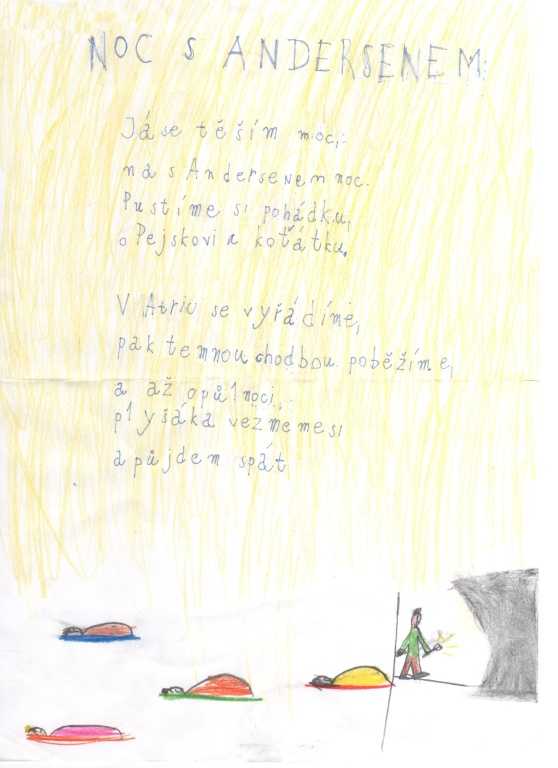 NOC S ANDERSENEM
Já se těším moc,
na s Andersenem noc.
Pustíme si pohádku,
o Pejskovi a koťátku.
V Atriu se vyřádíme,
pak temnou chodbou poběžíme,
a až opůlnoci,
plyšáka vezmeme si
a půjdem spát